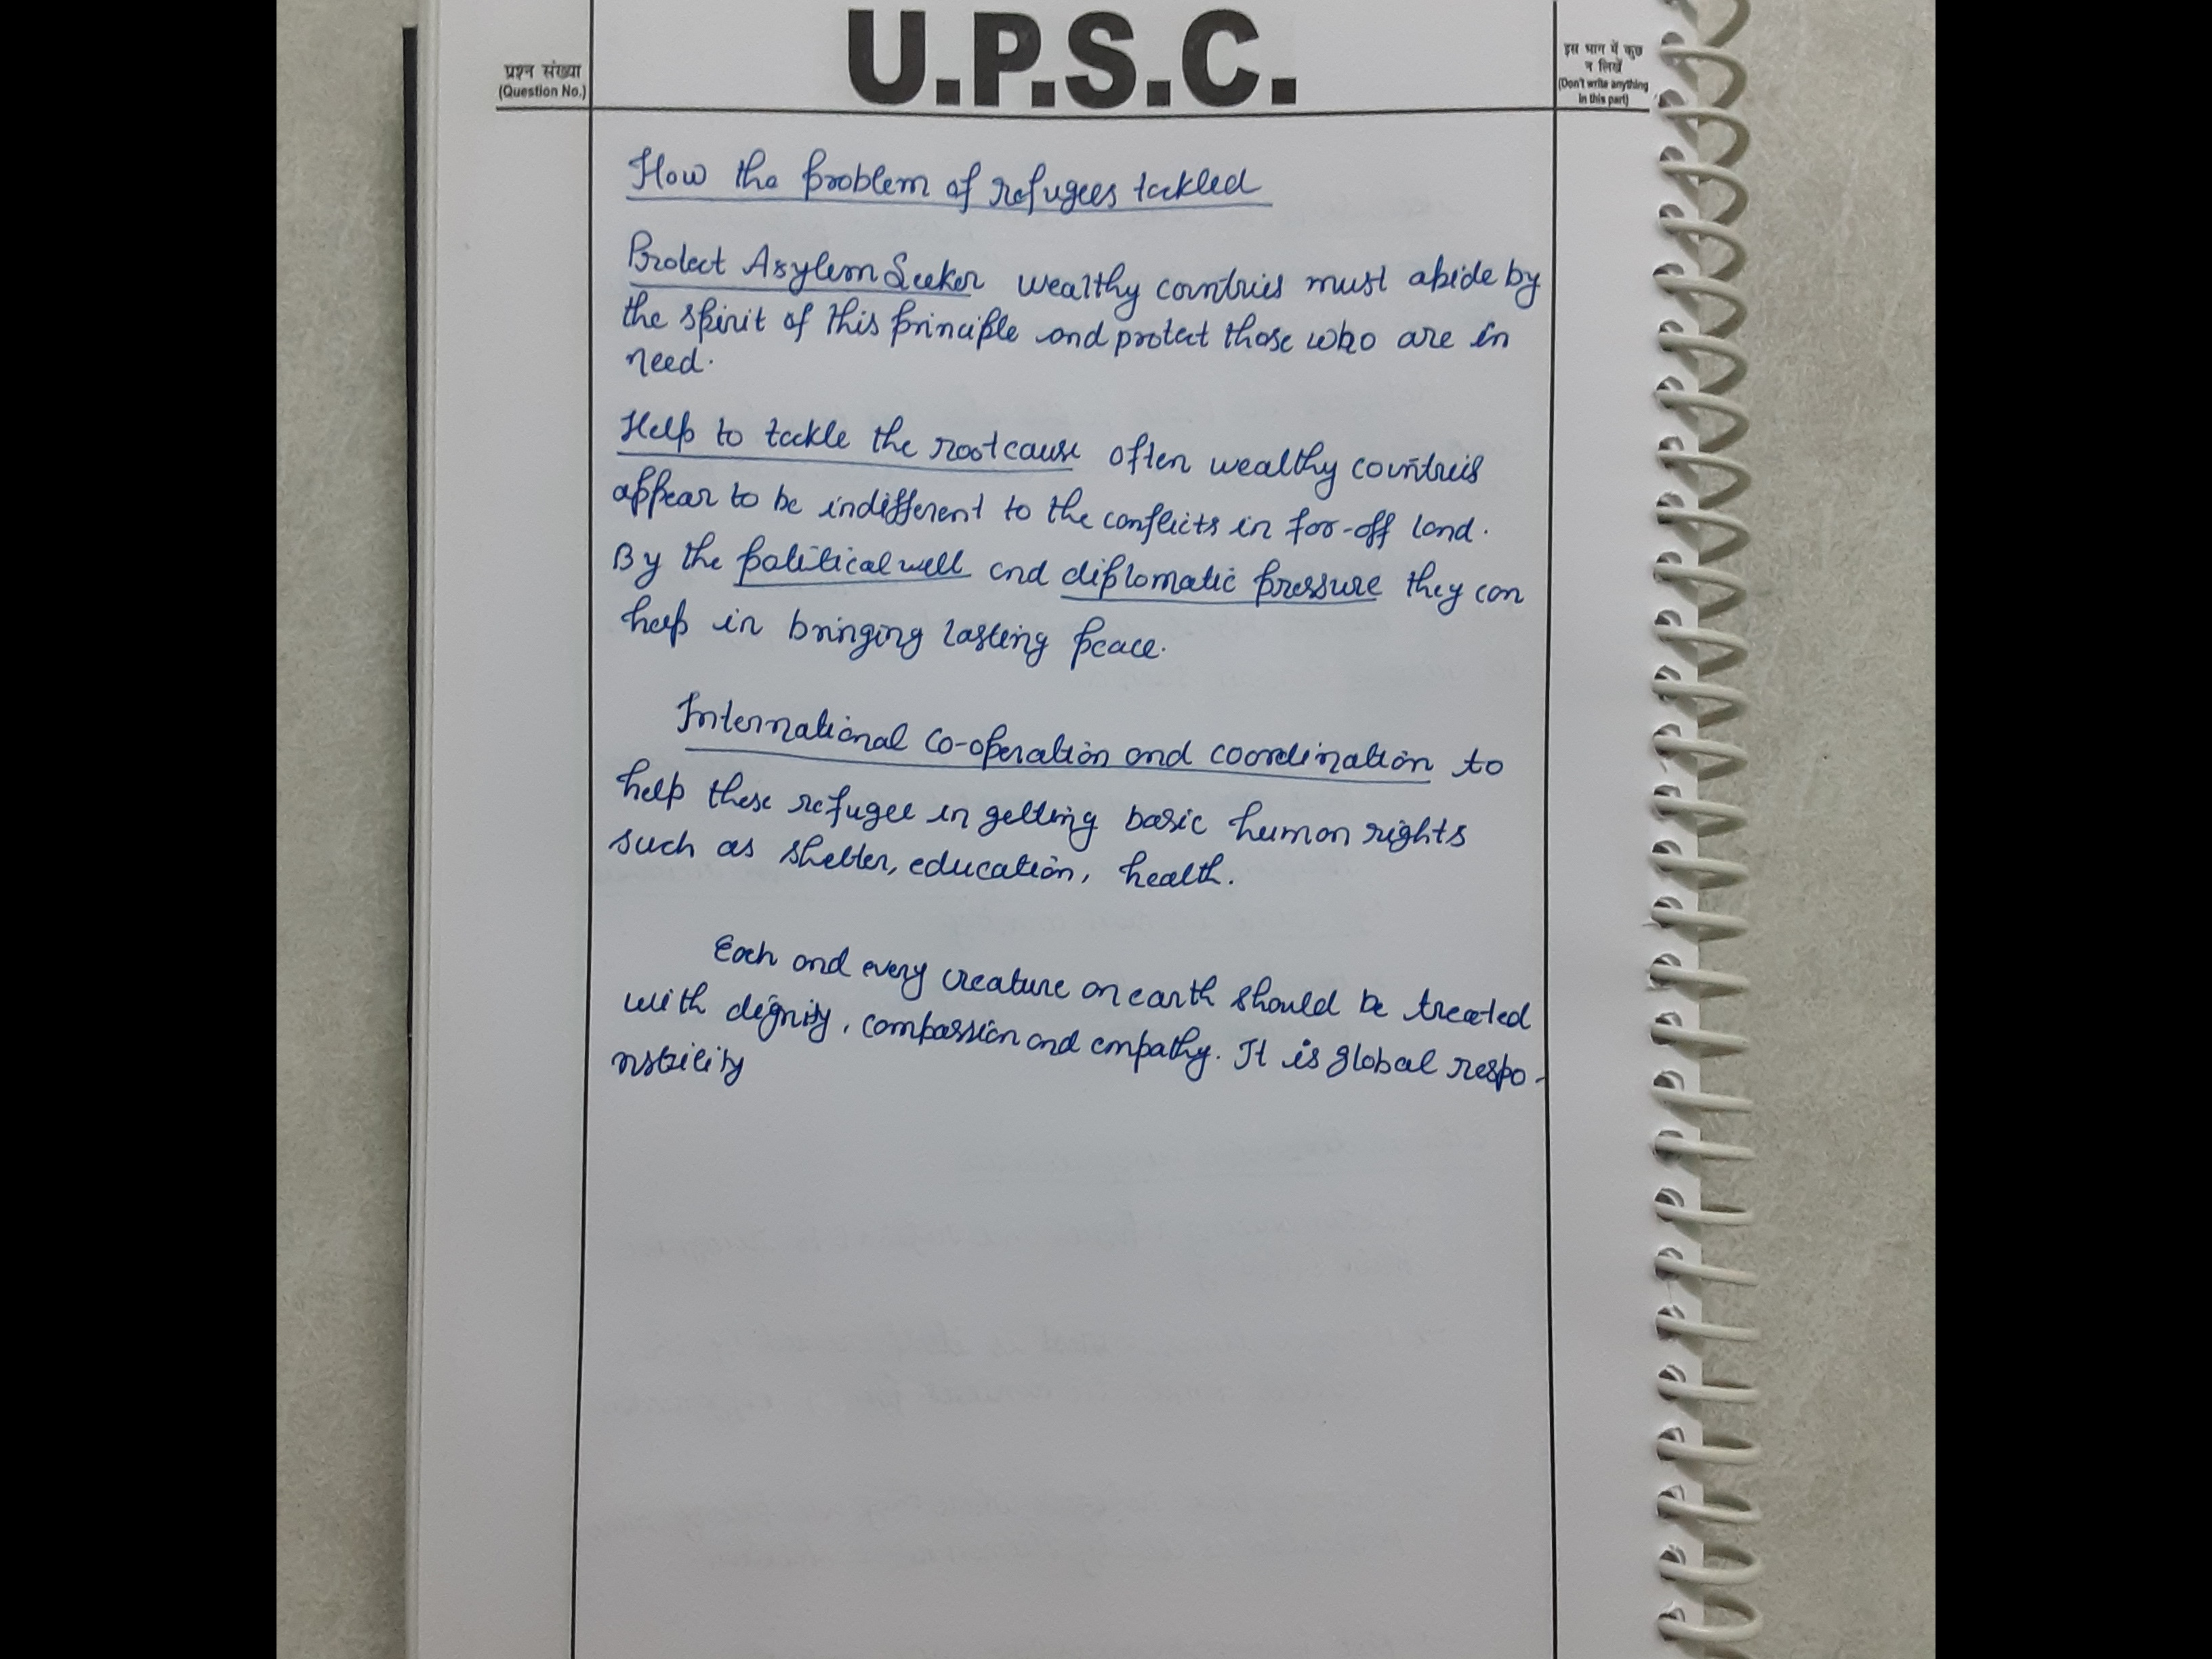 U.P.S.C.
प्रश्न संख्या
(Question No.)
इस भाग में कुछ
न लिखें
(Don't write anything
in this part)
How the problem of refugees tackled
Protect Asylem Seeker wealthy countries must abide by
the spirit of this principle and protect those who are in
need.
Help to tackle the root cause often wealthy countries
appear to be indifferent to the conflicts in far-off land.
By the political well and diplomatic pressure they can
help in bringing lasting peace.
International co-operation and coordination to
help these refugee in getting basic human rights
such as shelter, education, health.
Each and every creature on earth should be treated
with dignity, compassion and empathy. It is global respo-
nsbility